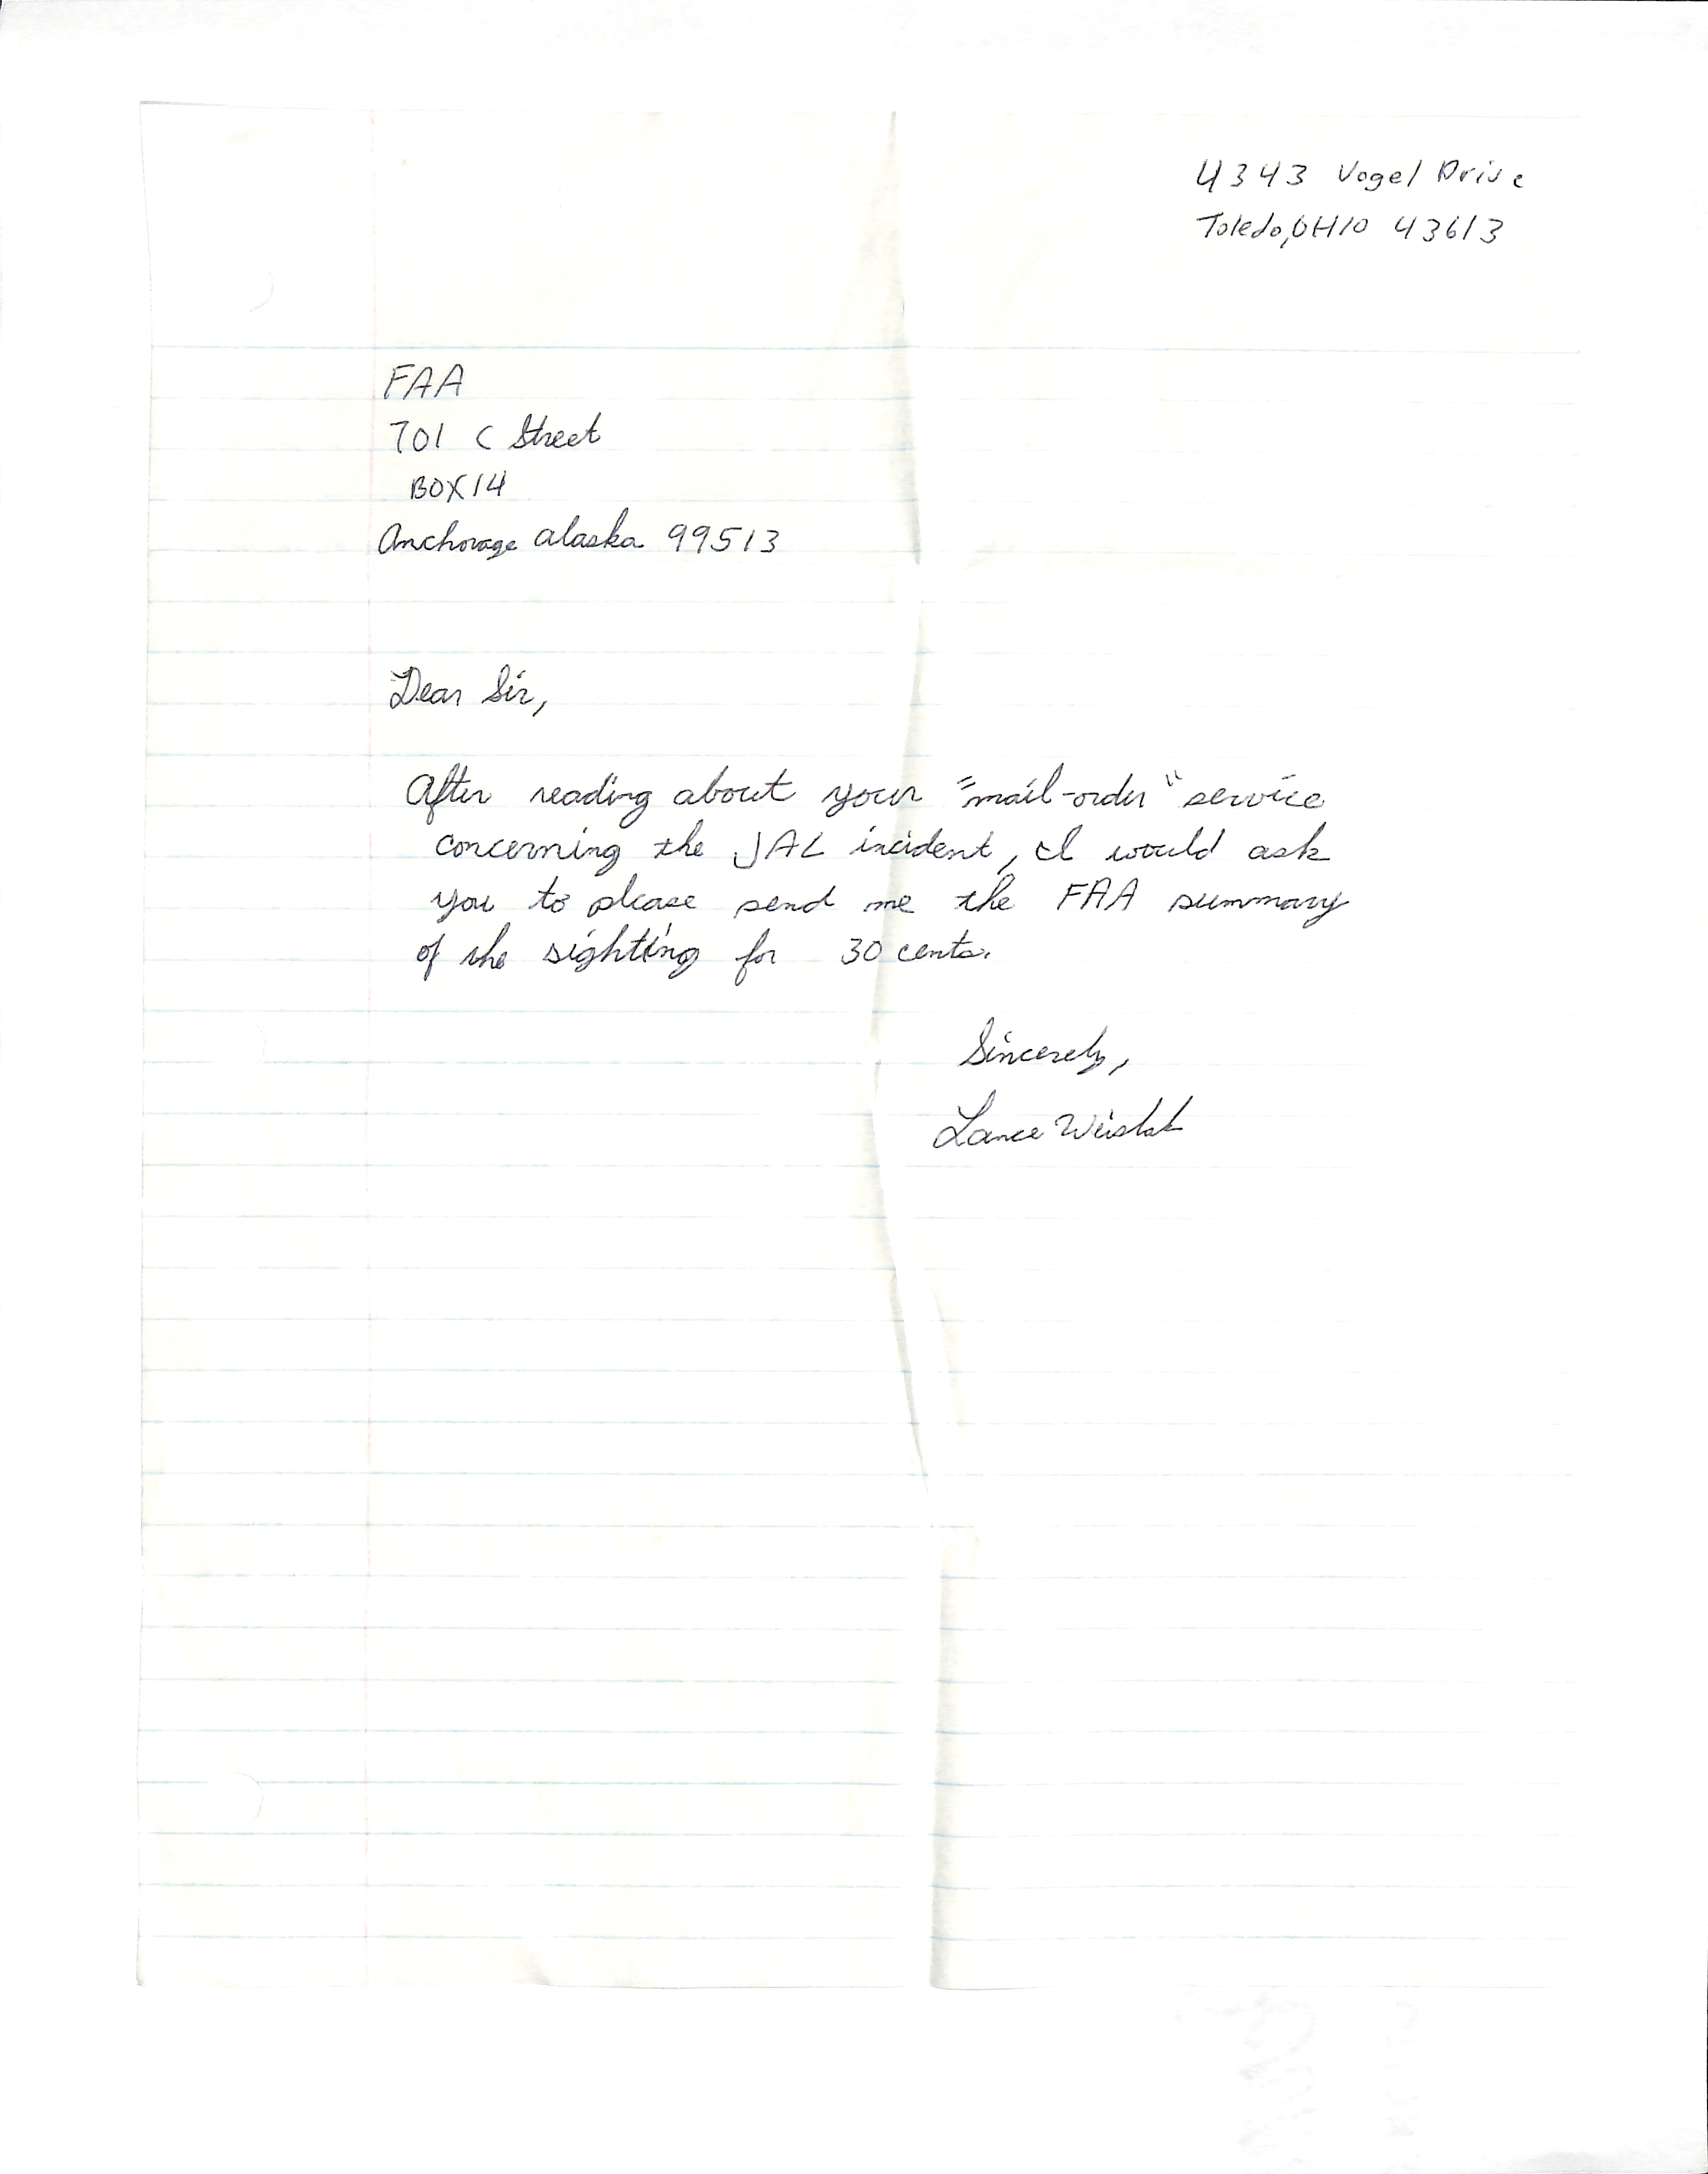 4343 Vogel Drive
Toledo, OHIO 43613
FAA
701 C Street
BOX 14
Anchorage Alaska 99513
Dear Sir,
After reading about your "mail-order" service
concerning the JAL incident, I would ask
you to please send me the FAA summary
of the sighting for 30 cents.
Sincerely,
Lance